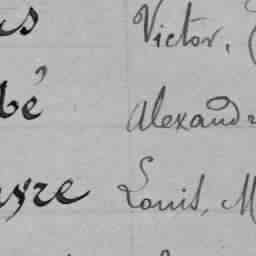 Victor,
bé Alexandr
ayre Louis, M